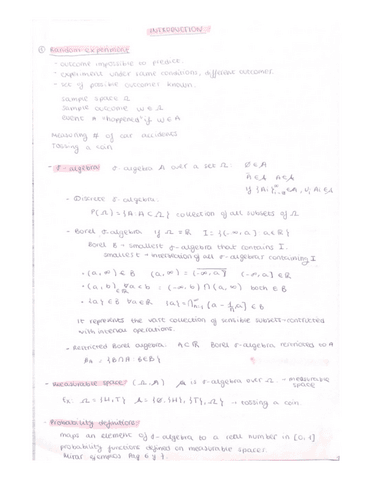 INTRODUCTION
Random experiment
- outcome impossible to predict.
- experiment under same conditions, different outcomes.
- set of possible outcomes known.
sample space Ω
sample outcome w ∈ Ω
event A "happened" if w ∈ A
measuring # of car accidents
Tossing a coin
- σ-algebra σ-algebra A over a set Ω: Ø ∈ A
- Discrete σ-algebra.
P(Ω) = {A: A ⊂ Ω} collection of all subsets of Ω
- Borel σ-algebra if Ω = ℝ I = {(-∞, a] a ∈ ℝ}
Borel B - smallest σ-algebra that contains I.
smallest = intersection of all σ-algebras containing I
· (a, ∞) ∈ B (a, ∞) = (-∞, a] (-∞, a] ∈ B
· (a, b) ∀a < b : (-∞, b) ∩ (a, ∞) both ∈ B
· {a} ∈ B ∀a ∈ ℝ
It represents the vast collection of sensible subsets-constructed
with interval operations.
- Restricted Borel algebra: A ⊂ ℝ Borel σ-algebra restricted to A
B_A = {B ∩ A : B ∈ B}
- Measurable space (Ω, A) A is σ-algebra over Ω. - measurable
space
Ex. Ω = {H, T} A = {Ø, {H}, {T}, Ω} → tossing a coin.
- Probability definition:
maps an element of σ-algebra to a real number in [0, 1]
probability functions defined on measurable spaces.
Mirar ejemplos Pag 6 y 7.